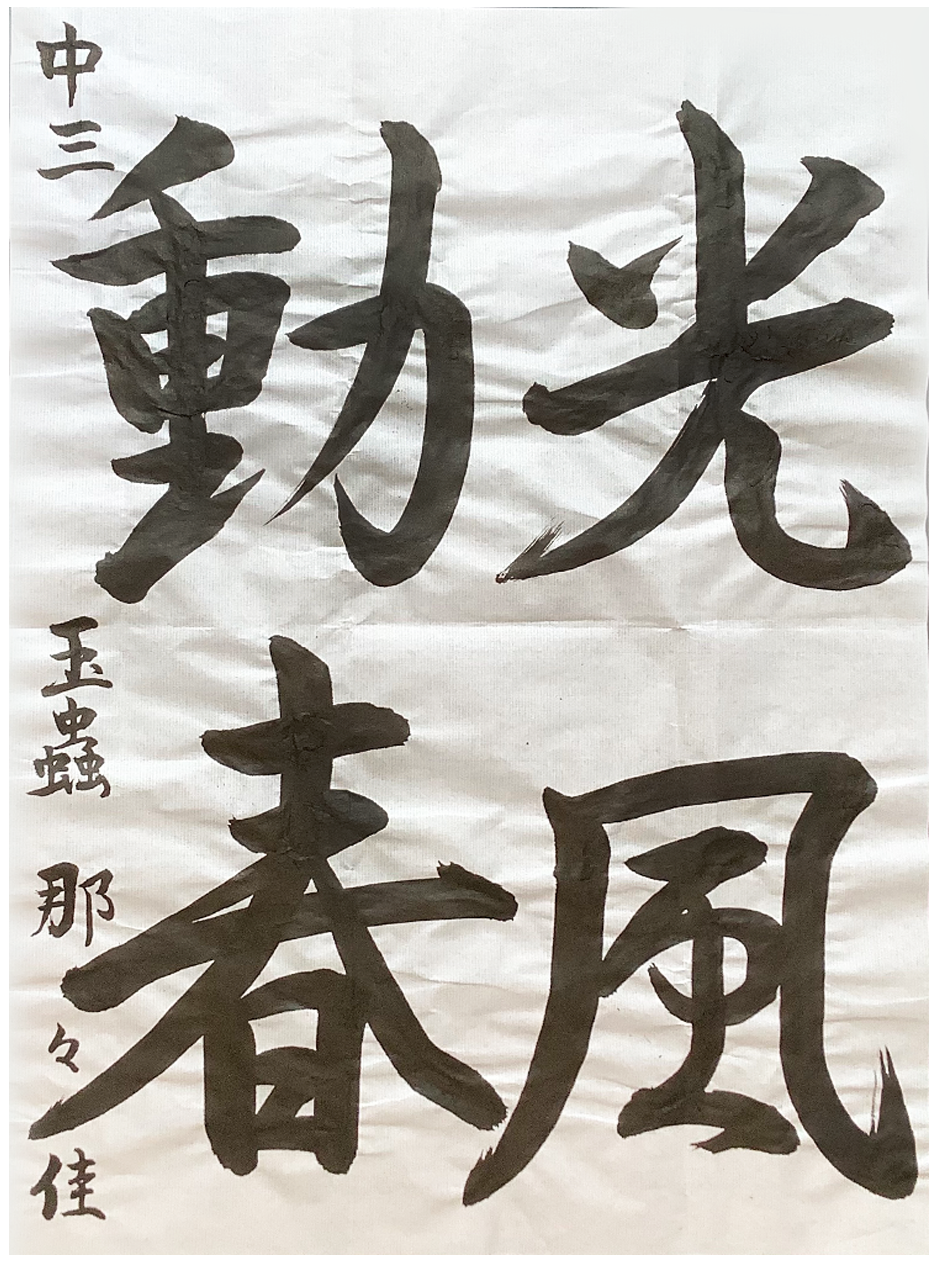 光風
動春
中三 玉蟲 那々佳